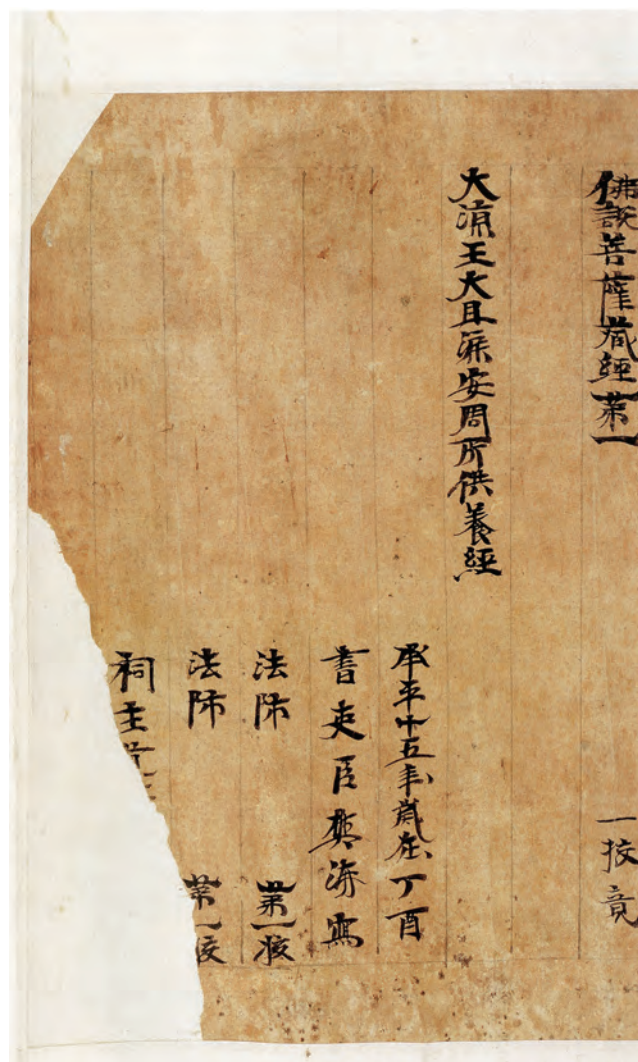 佛說菩薩藏經第一 一挍竟
大涼王大且渠安周所供養經
承平十五年歲在丁酉
書吏臣樊海寫
法師 第一挍
法師 第一挍
祠主